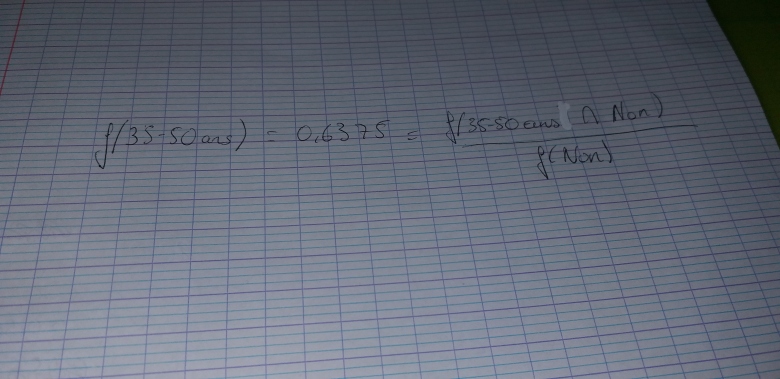 f(35-50 ans) = 0,6375 = f(35-50 ans ∩ Non) / f(Non)